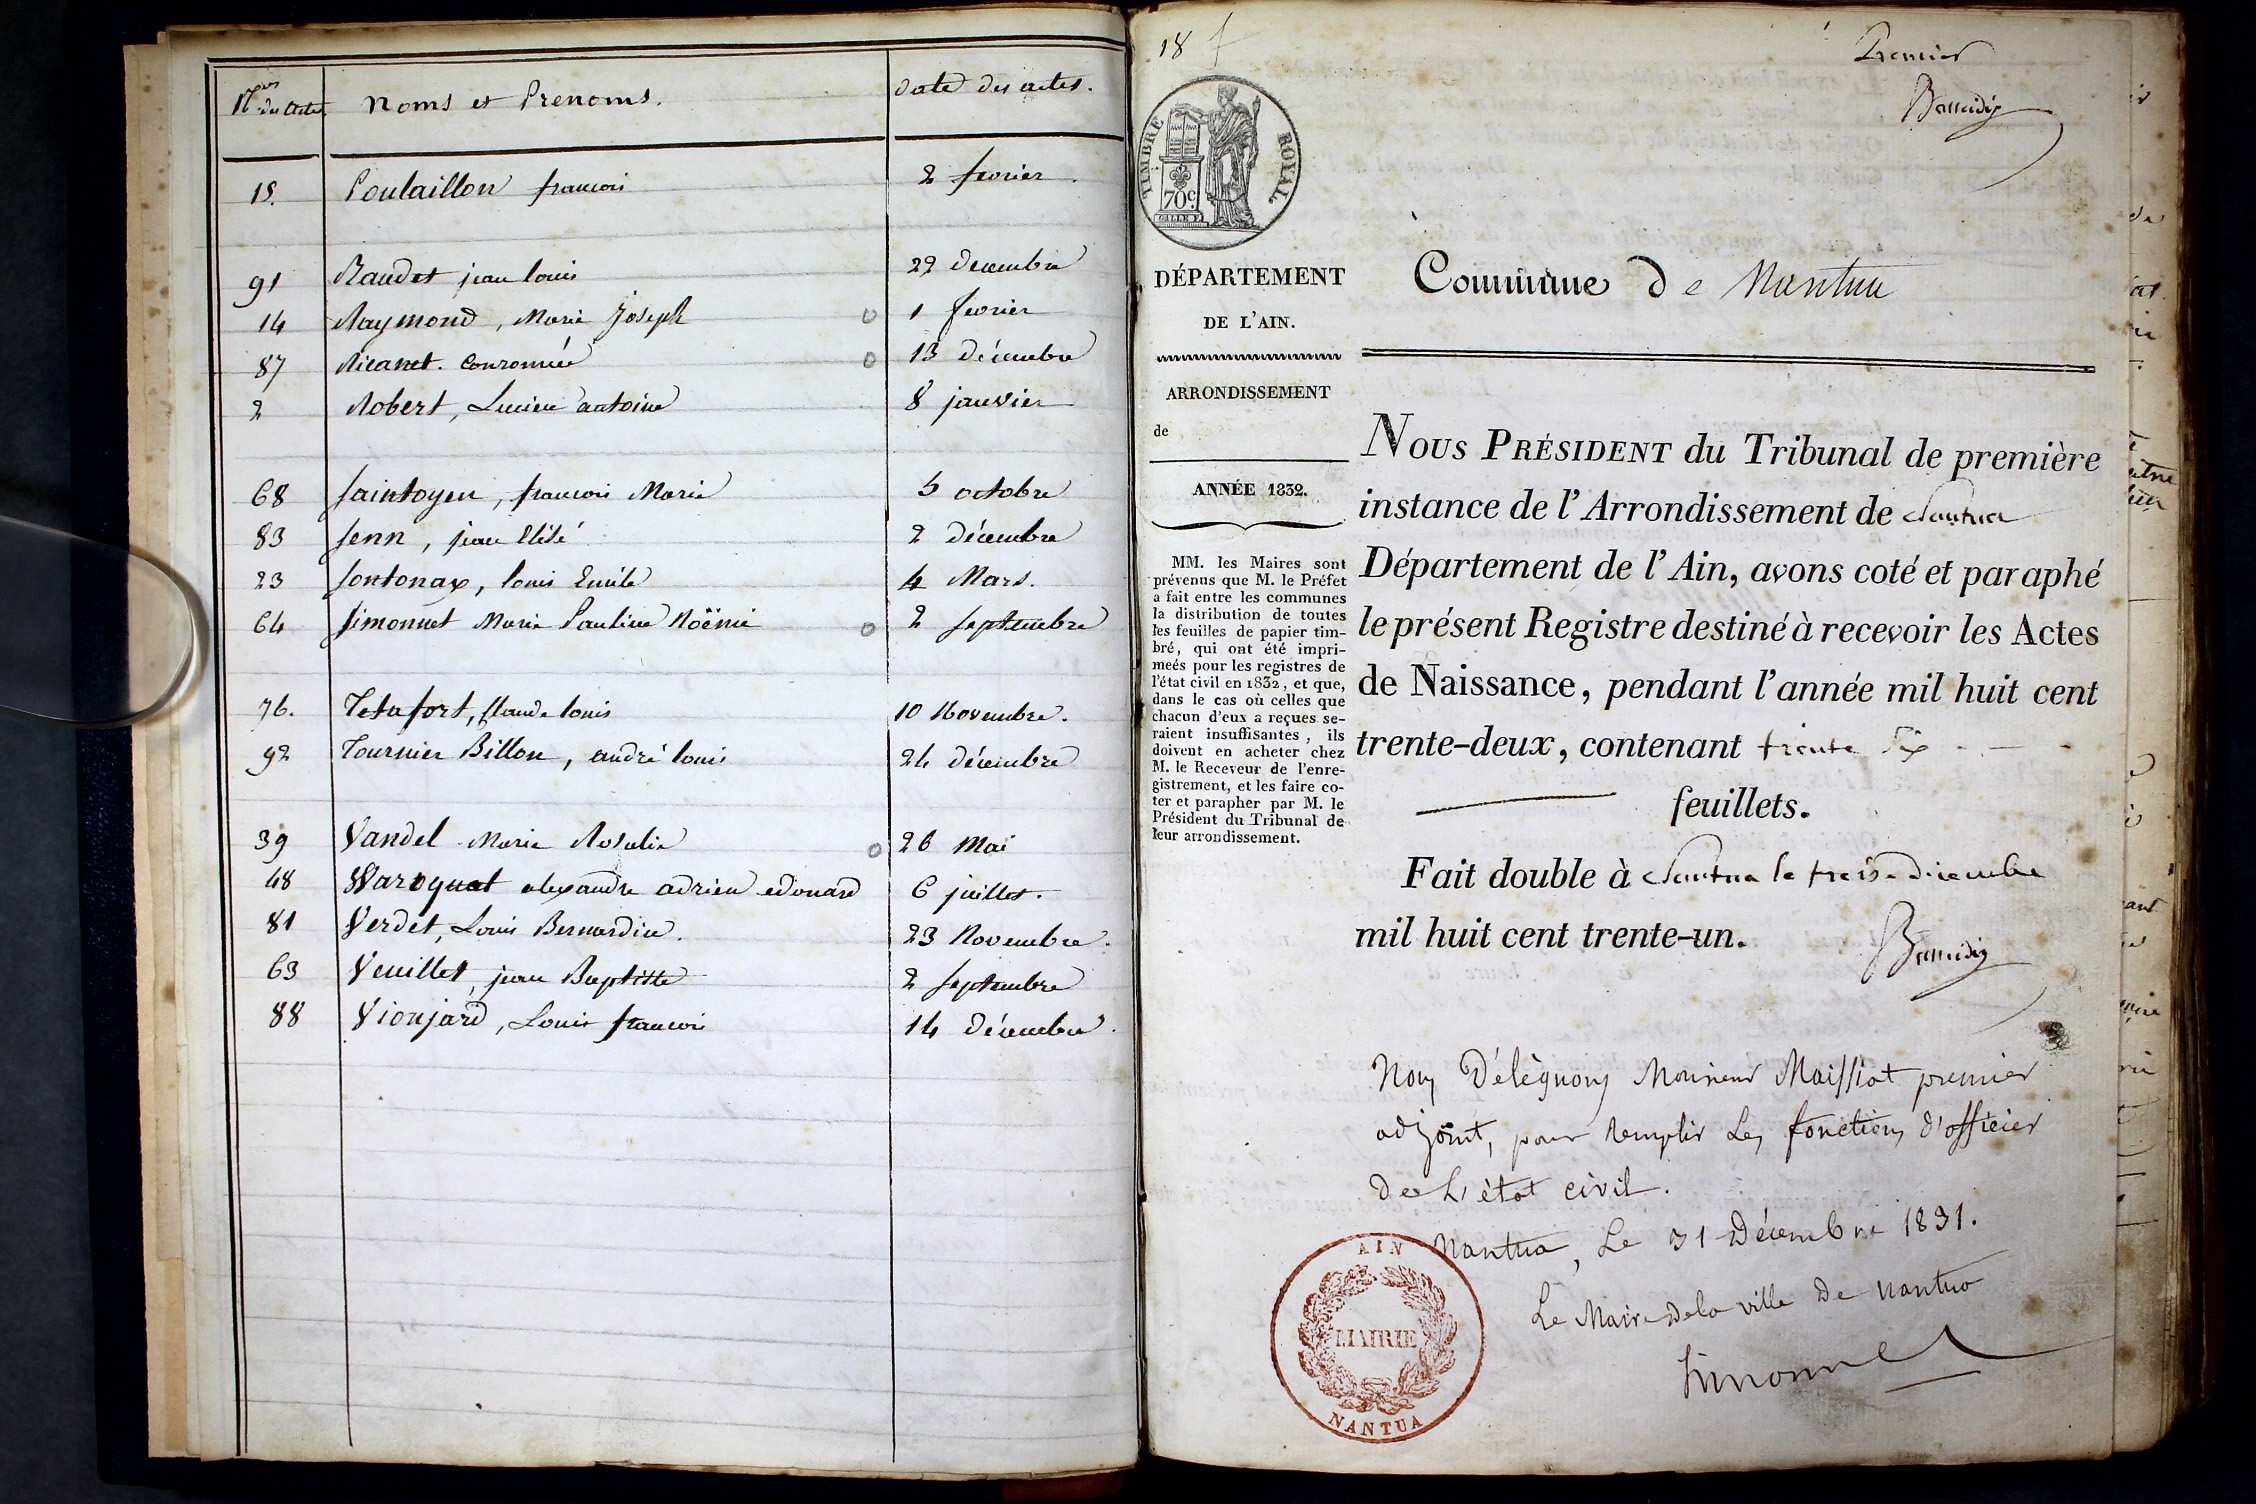 Nos des Actes. Noms et Prenoms. Date des actes.
15. Poulaillon francois 2 fevrier.
91 Raudet jean louis 22 decembre
14 Raymond, Marie Joseph 1 fevrier
87 Ricanet. Couronnée 13 décembre
2 Robert, Lucien antoine 8 janvier
68 Saintoyen, francois Marie 5 octobre
83 Senn, jean Elisé 2 décembre
23 Sontonax, louis Emile 4 Mars.
64 Simonnet Marie Pauline Noëmie 2 Septembre
76. Tetafort, Claude louis 10 Novembre.
92 Tournier Billon, andré louis 24 décembre
39 Vandel Marie Rosalie 26 Mai
48 Waroquet alexandre adrien edouard 6 juillet.
81 Verdet, Louis Bernardin. 23 Novembre.
63 Veuillet, jean Baptiste 2 Septembre
88 Vionjard, Louis francois 14 décembre.
18
Premier
TIMBRE ROYAL
70 c.
DÉPARTEMENT
DE L'AIN.
ARRONDISSEMENT
de
ANNÉE 1832.
MM. les Maires sont
prévenus que M. le Préfet
a fait entre les communes
la distribution de toutes
les feuilles de papier tim-
bré, qui ont été impri-
meés pour les registres de
l'état civil en 1832, et que,
dans le cas où celles que
chacun d'eux a reçues se-
raient insuffisantes, ils
doivent en acheter chez
M. le Receveur de l'enre-
gistrement, et les faire co-
ter et parapher par M. le
Président du Tribunal de
leur arrondissement.
Commune de Nantua
NOUS PRÉSIDENT du Tribunal de première
instance de l'Arrondissement de Nantua
Département de l'Ain, avons coté et paraphé
le présent Registre destiné à recevoir les Actes
de Naissance, pendant l'année mil huit cent
trente-deux, contenant trente Six
feuillets.
Fait double à Nantua le treise décembre
mil huit cent trente-un.
Nous Délèguons Monsieur Maissiat premier
adjoint, pour remplir Les fonctions d'officier
de L'état civil.
Nantua, Le 31 Décembre 1831.
Le Maire de la ville de Nantua
Simonnet
AIN
MAIRIE
NANTUA